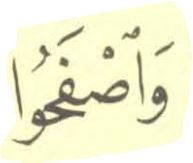 وَٱصْفَحُوا